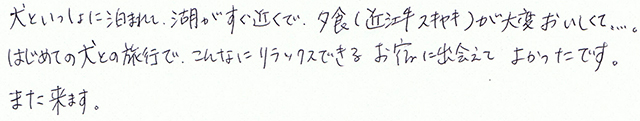 犬といっしょに泊まれて、湖がすぐ近くで、夕食(近江牛スキヤキ)が大変おいしくて…。
はじめての犬との旅行で、こんなにリラックスできるお宿に出会えてよかったです。
また来ます。